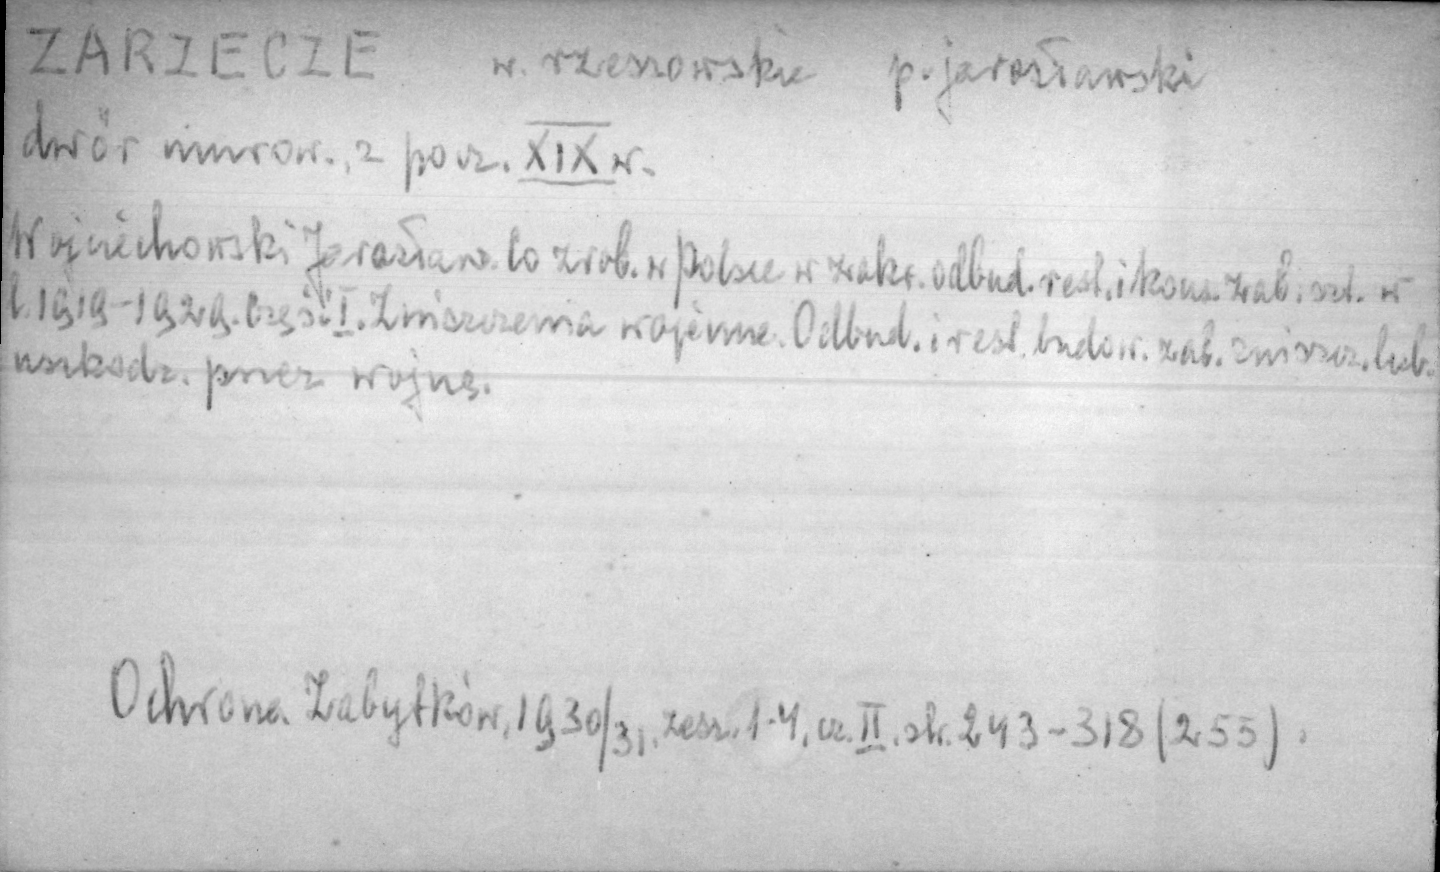 ZARZECZE w. rzeszowskie p. jarosławski
dwór murow., z pocz. XIX w.
Wojciechowski Jarosław. Co zrob. w Polsce w zakr. odbud. rest. i kons. zab. szt. w
l. 1919-1929. Część I. Zniszczenia wojenne. Odbud. i rest. budow. zab. zniszcz. lub.
uszkodz. przez wojnę.
Ochrona Zabytków, 1930/31, zesz. 1-4, cz. II, str. 243-318 (255).